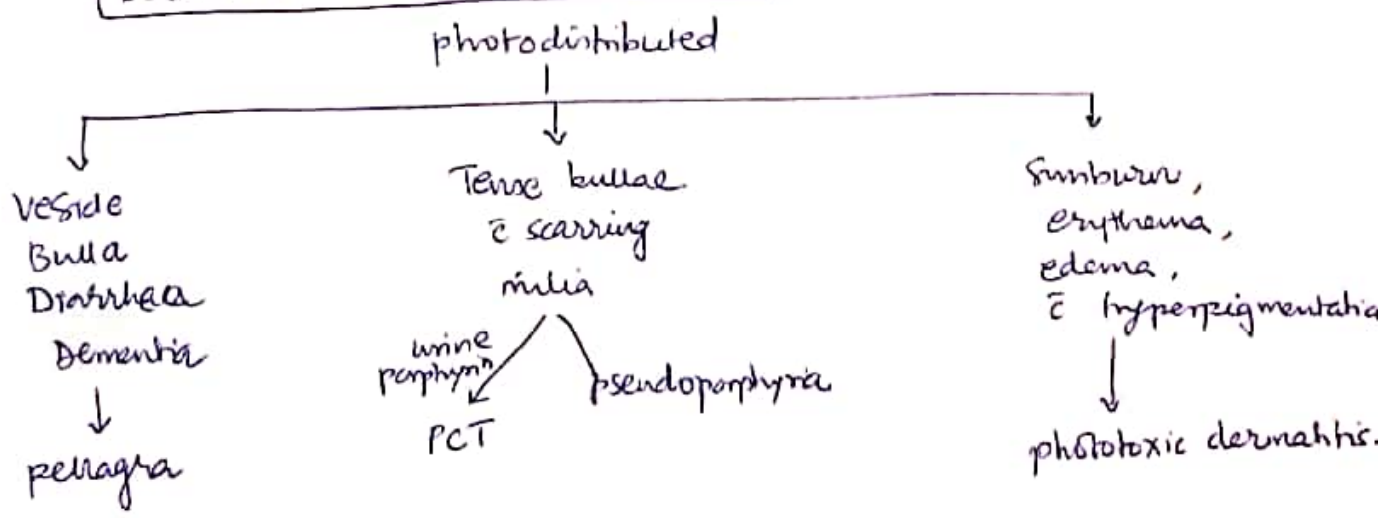 photodistributed
Veside
Bulla
Diarrhaea
Dementia
pellagra
Tense bullae
c̄ scarring
milia
urine
porphyrⁿ
PCT
pseudoporphyria
Sunburn,
erythema,
edema,
c̄ hyperpigmentatio
phototoxic dermatitis.